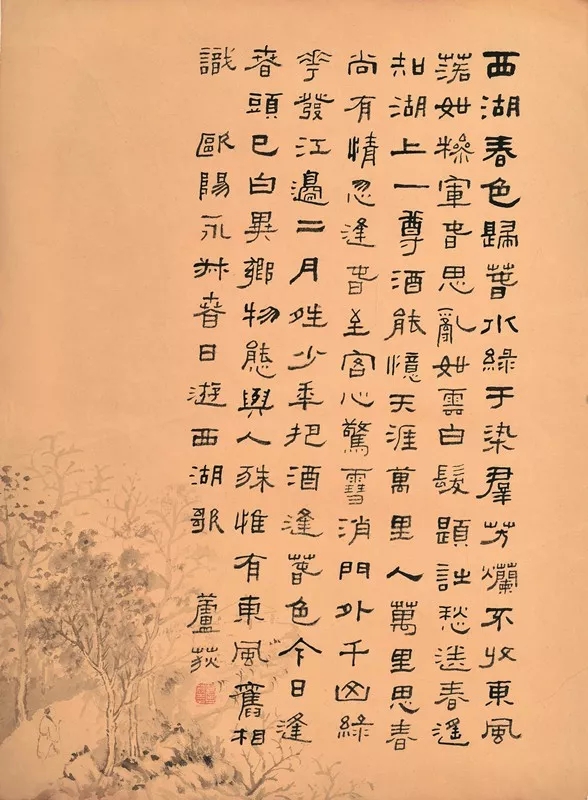 西湖春色歸春水綠于染羣芳爛不收東風
落如糝軍春思亂如雲白髮題詩愁送春遙
知湖上一尊酒能憶天涯萬里人萬里思春
尚有情忽逢春至客心驚雪消門外千山綠
華發江邊二月晴少年把酒逢春色今日逢
春頭已白異鄉物態與人殊惟有東風舊相
識 歐陽永叔春日遊西湖歌 蘆荻